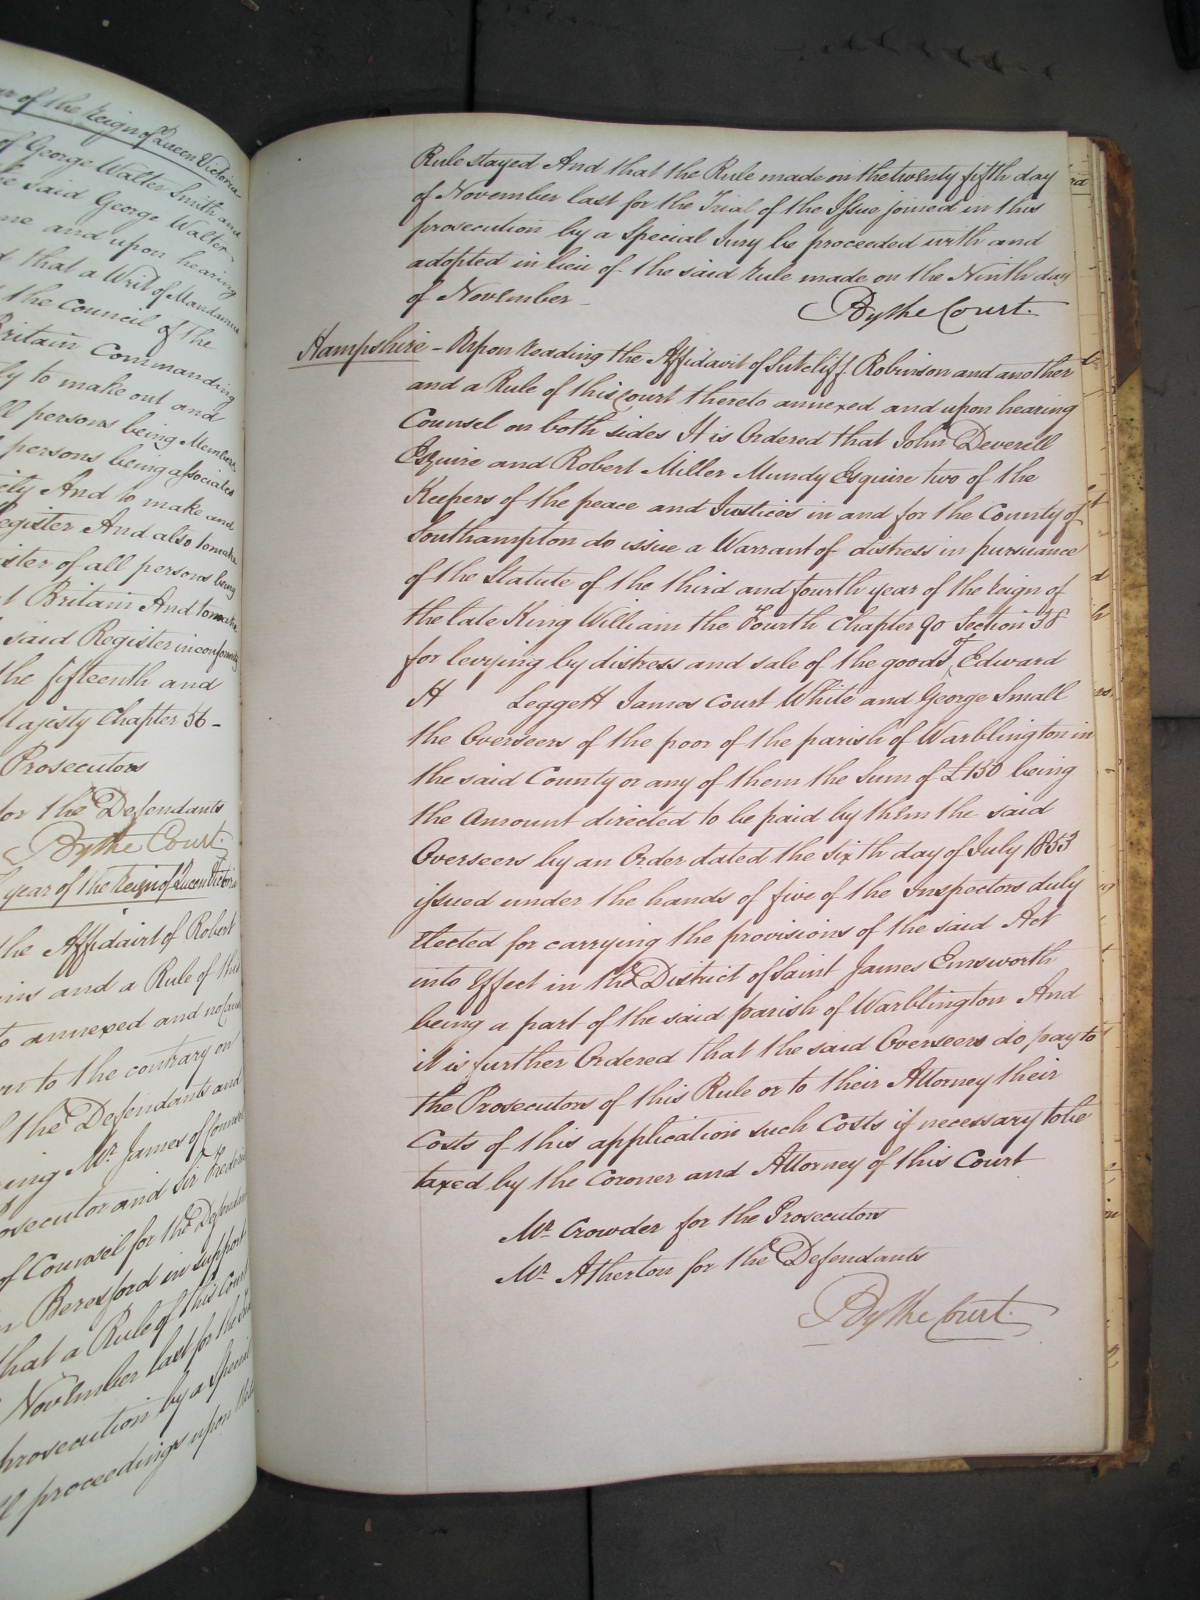 of the Reign of Queen Victoria
of George Walter Smith and
the said George Walter
me and upon hearing
that a Writ of Mandamus
the Council of the
Britain Commanding
to make out and
all persons being Members
persons being associates
And to make and
Register And also to make
of all persons being
Britain And to make
said Register in conformity
the fifteenth and
Majesty Chapter 56 -
Prosecutors
for the Defendants
By the Court.
year of the Reign of Queen Victoria
the Affidavit of Robert
and a Rule of this
annexed and no Cause
to the contrary on
the Defendants and
Mr. James of Counsel
Prosecutor and Sir Frederic
of Counsel for the Defendants
Beresford in support
that a Rule of this Court
November last for the
prosecution by a Special
proceedings upon
Rule stayed And that the Rule made on the twenty fifth day
of November last for the Trial of the Issue joined in this
prosecution by a Special Jury be proceeded with and
adopted in lieu of the said Rule made on the Ninth day
of November -
By the Court.
Hampshire - Upon reading the Affidavit of Sutcliff Robinson and another
and a Rule of this Court thereto annexed and upon hearing
Counsel on both sides It is Ordered that John Deverell
Esquire and Robert Miller Mundy Esquire two of the
Keepers of the peace and Justices in and for the County of
Southampton do issue a Warrant of distress in pursuance
of the Statute of the third and fourth year of the reign of
the late King William the Fourth Chapter 90 Section 38
for levying by distress and sale of the goods of Edward
H Leggett James Court White and George Small
the Overseers of the poor of the parish of Warblington in
the said County or any of them the Sum of £150 being
the Amount directed to be paid by them the said
Overseers by an Order dated the sixth day of July 1853
issued under the hands of five of the Inspectors duly
elected for carrying the provisions of the said Act
into Effect in the District of Saint James Emsworth
being a part of the said parish of Warblington And
it is further Ordered that the said Overseers do pay to
the Prosecutors of this Rule or to their Attorney their
Costs of this application such Costs if necessary to be
taxed by the Coroner and Attorney of this Court
Mr. Crowder for the Prosecutors
Mr. Atherton for the Defendants
By the Court.